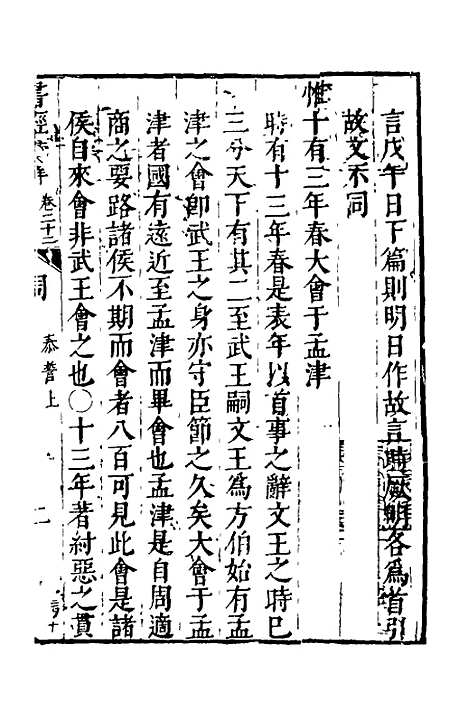 言戊午日下篇則明日作故言時厥明各爲首引
故文不同
惟十有三年春大會于孟津
時有十三年春是表年以首事之辭文王之時已
三分天下有其二至武王嗣文王爲方伯始有孟
津之會卽武王之身亦守臣節之久矣大會于孟
津者國有遠近至孟津而畢會也孟津是自周適
商之要路諸侯不期而會者八百可見此會是諸
侯自來會非武王會之也〇十三年著紂惡之貫
書經 卷二十二 周 泰誓上 二